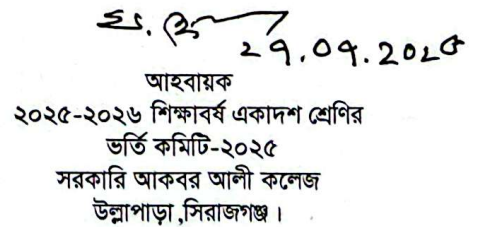 ২৭.০৭.২০২৫
আহবায়ক
২০২৫-২০২৬ শিক্ষাবর্ষ একাদশ শ্রেণির
ভর্তি কমিটি-২০২৫
সরকারি আকবর আলী কলেজ
উল্লাপাড়া,সিরাজগঞ্জ।